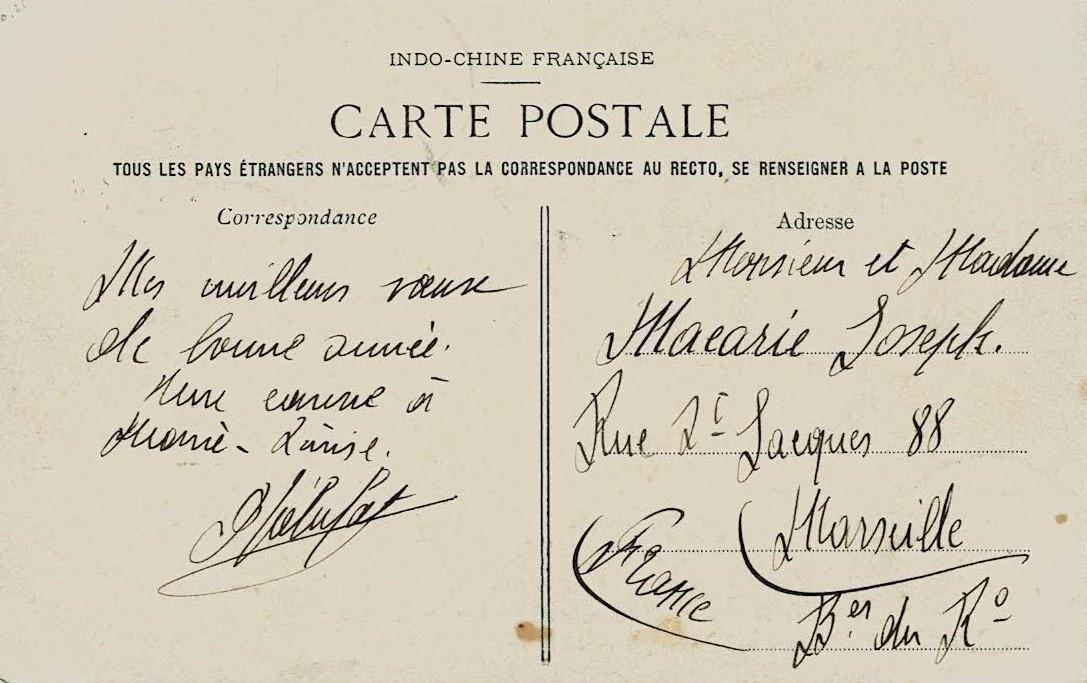 INDO-CHINE FRANÇAISE
CARTE POSTALE
TOUS LES PAYS ÉTRANGERS N'ACCEPTENT PAS LA CORRESPONDANCE AU RECTO, SE RENSEIGNER A LA POSTE
Correspondance
Mes meilleurs vœux
de bonne année.
à
Marie-Louise.
Adresse
Monsieur et Madame
Macarie Joseph.
Rue St Jacques 88
Marseille
France
B.es du R°